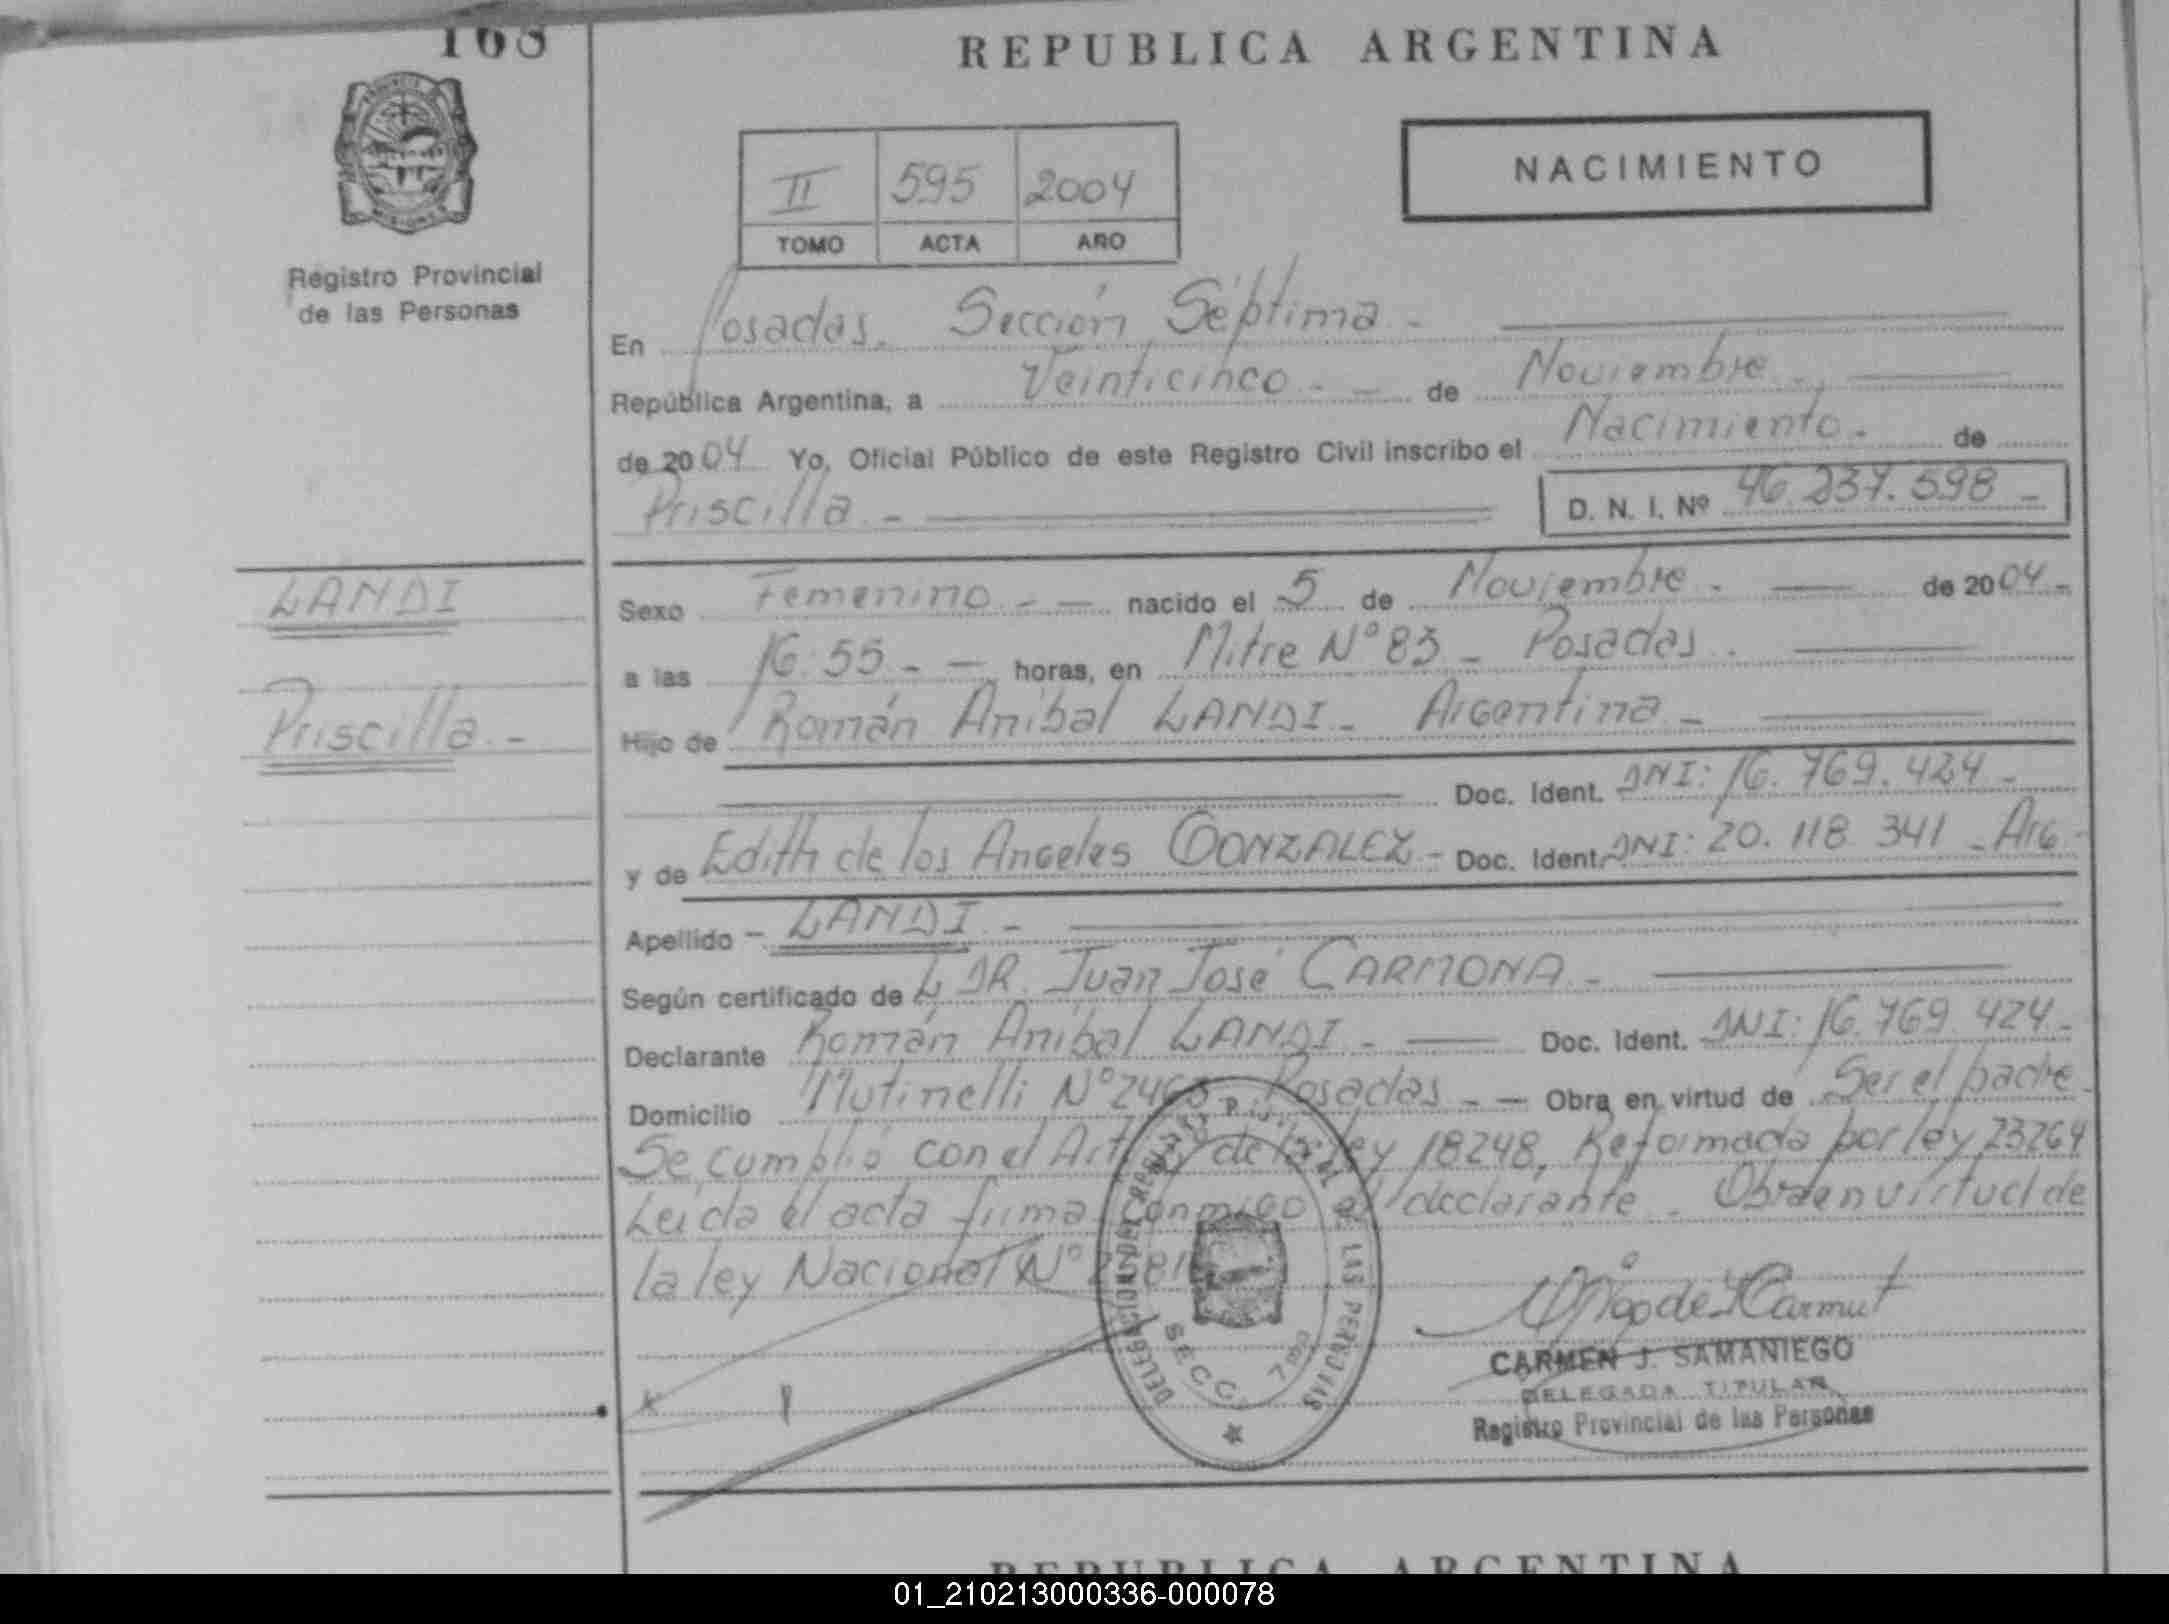 168
REPUBLICA ARGENTINA
PROVINCIA DE
MISIONES
Registro Provincial
de las Personas
NACIMIENTO
II 595 2004
TOMO ACTA AÑO
En Posadas. Sección Séptima -
República Argentina, a Veinticinco - - de Noviembre -
de 2004 Yo, Oficial Público de este Registro Civil inscribo el Nacimiento - de
Priscilla - D. N. I. Nº 46.237.598 -
LANDI
Priscilla -
Sexo Femenino - - nacido el 5 de Noviembre - de 2004 -
a las 16:55 - - horas, en Mitre Nº 83 - Posadas -
Hijo de Román Aníbal LANDI - Argentina -
Doc. Ident. DNI: 16.769.424 -
y de Edith de los Angeles GONZALEZ - Doc. Ident. DNI: 20.118.341 - Arg -
Apellido - LANDI -
Según certificado de DR. Juan José CARMONA -
Declarante Román Aníbal LANDI - Doc. Ident. DNI: 16.769.424 -
Domicilio Mutinelli Nº Posadas - - Obra en virtud de Ser el padre -
Se cumplió con el Art de la ley 18248, Reformada por ley 23264
Leída el acta firma conmigo el declarante - Obra en virtud de
la ley Nacional Nº
DELEGACION DEL REGISTRO PROVINCIAL DE LAS PERSONAS
SECC. 7ma
CARMEN J. SAMANIEGO
DELEGADA TITULAR
Registro Provincial de las Personas
REPUBLICA ARGENTINA
01_210213000336-000078